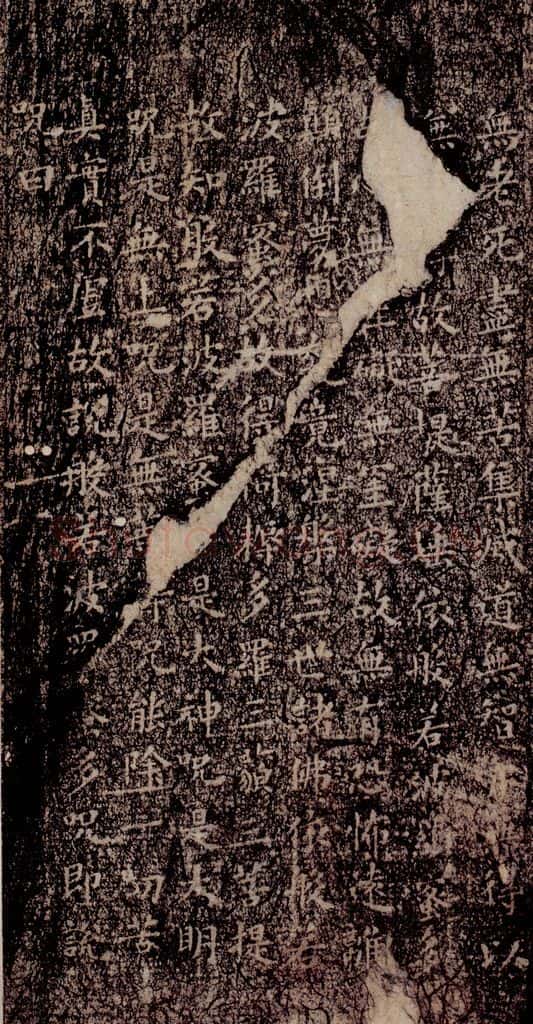 無老死盡無苦集滅道無智得以
無故菩提薩埵依般若波羅蜜多
無無罣礙故無有恐怖遠離
顛倒夢想竟涅槃三世諸佛依般若
波羅蜜多故得阿耨多羅三藐三菩提
故知般若波羅蜜是大神呪是大明
呪是無上呪是無等呪能除一切苦
真實不虛故說般若波多呪即說
呪曰